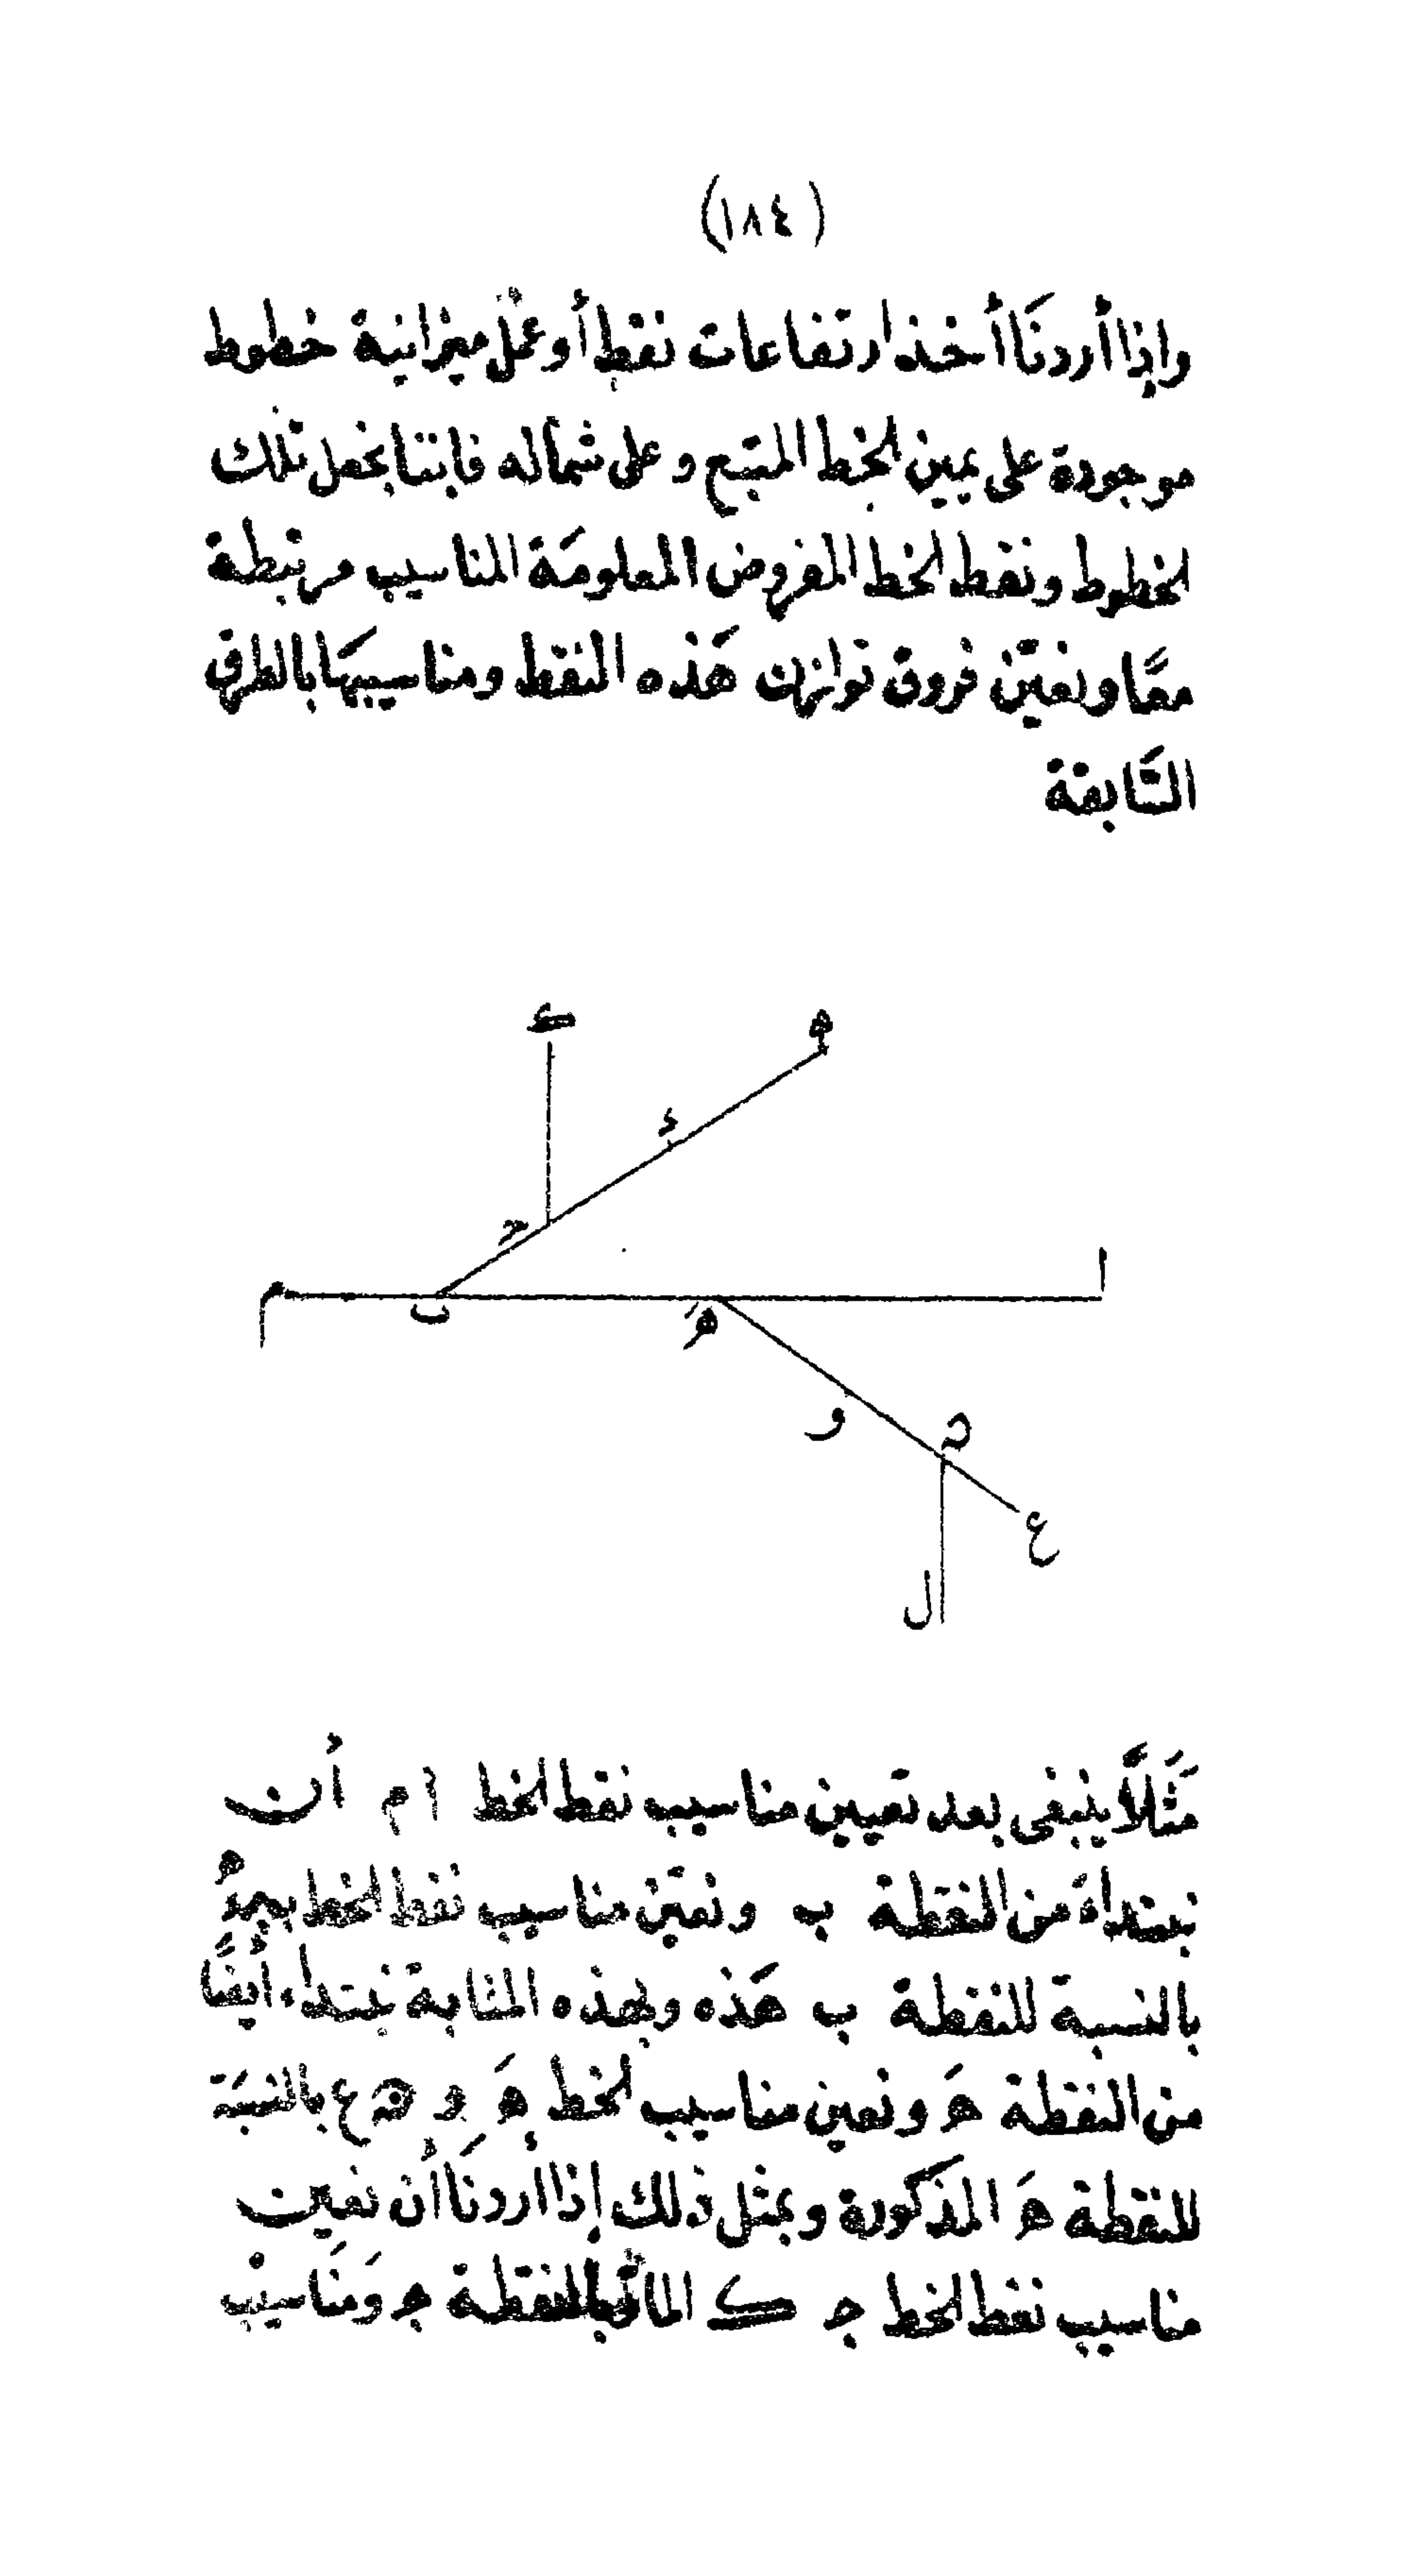 (١٨٤)
وإذا أردنَا أخذ ارتفاعات نقط أو عمل ميزانية خطوط
موجودة على يمين الخط المتبع وعلى شماله فإننا نجعل تلك
الخطوط ونقط الخط المفروض المعلومَة المناسيب مرتبطة
معًا ونعيّن فروق توازن هَذه النقط ومناسيبهَا بالطرق
السَّابقة
ك
ه
ء
ج
ا
م
ب
هَ
و
ن
ع
ل
مَثَلاً ينبغى بعد تعيين مناسيب نقط الخط ا م أن
نبتداءَ من النقطة ب ونعيّن مناسيب نقط الخط
بالنسبة للنقطة ب هَذه وبهذه المثابة نبتداء أيضًا
من النقطة هَ ونعين مناسيب الخط هَ و ن ع بالنسبَة
للنقطة هَ المذكورة وبمثل ذلك إذا أردنَا أن نعين
مناسيب نقط الخط ج ك المار بالنقطة ج وَمنَاسيب